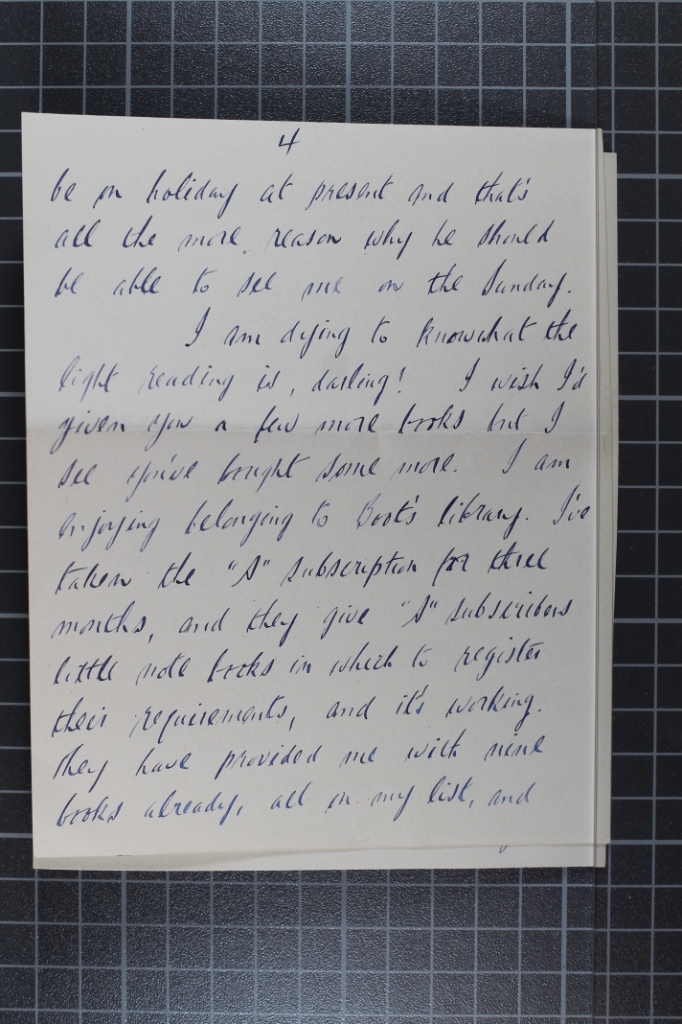 4
be on holiday at present and that's
all the more reason why he should
be able to see me on the Sunday.
I am dying to know what the
light reading is, darling! I wish I'd
given you a few more books but I
see you've bought some more. I am
enjoying belonging to Boot's library. I've
taken the "A" subscription for three
months, and they give "A" subscribers
little note books in which to register
their requirements, and it's working.
They have provided me with nine
books already, all on my list, and